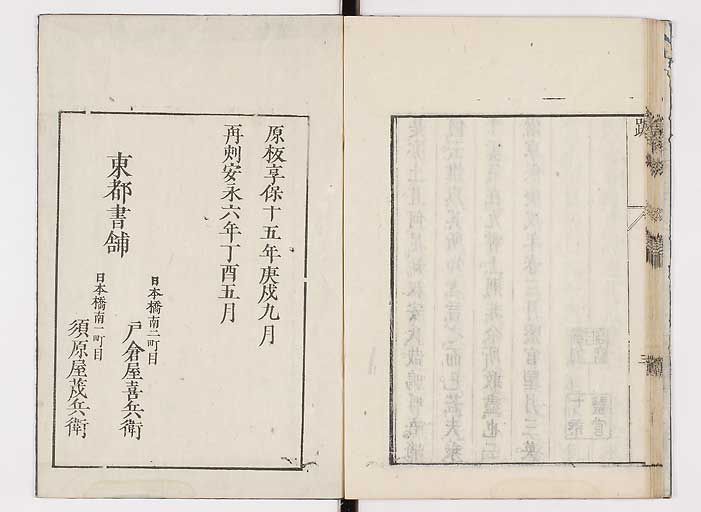 跋
三
原板享保十五年庚戌九月
再刻安永六年丁酉五月
東都書舗
日本橋南二町目
戸倉屋喜兵衛
日本橋南一町目
須原屋茂兵衛